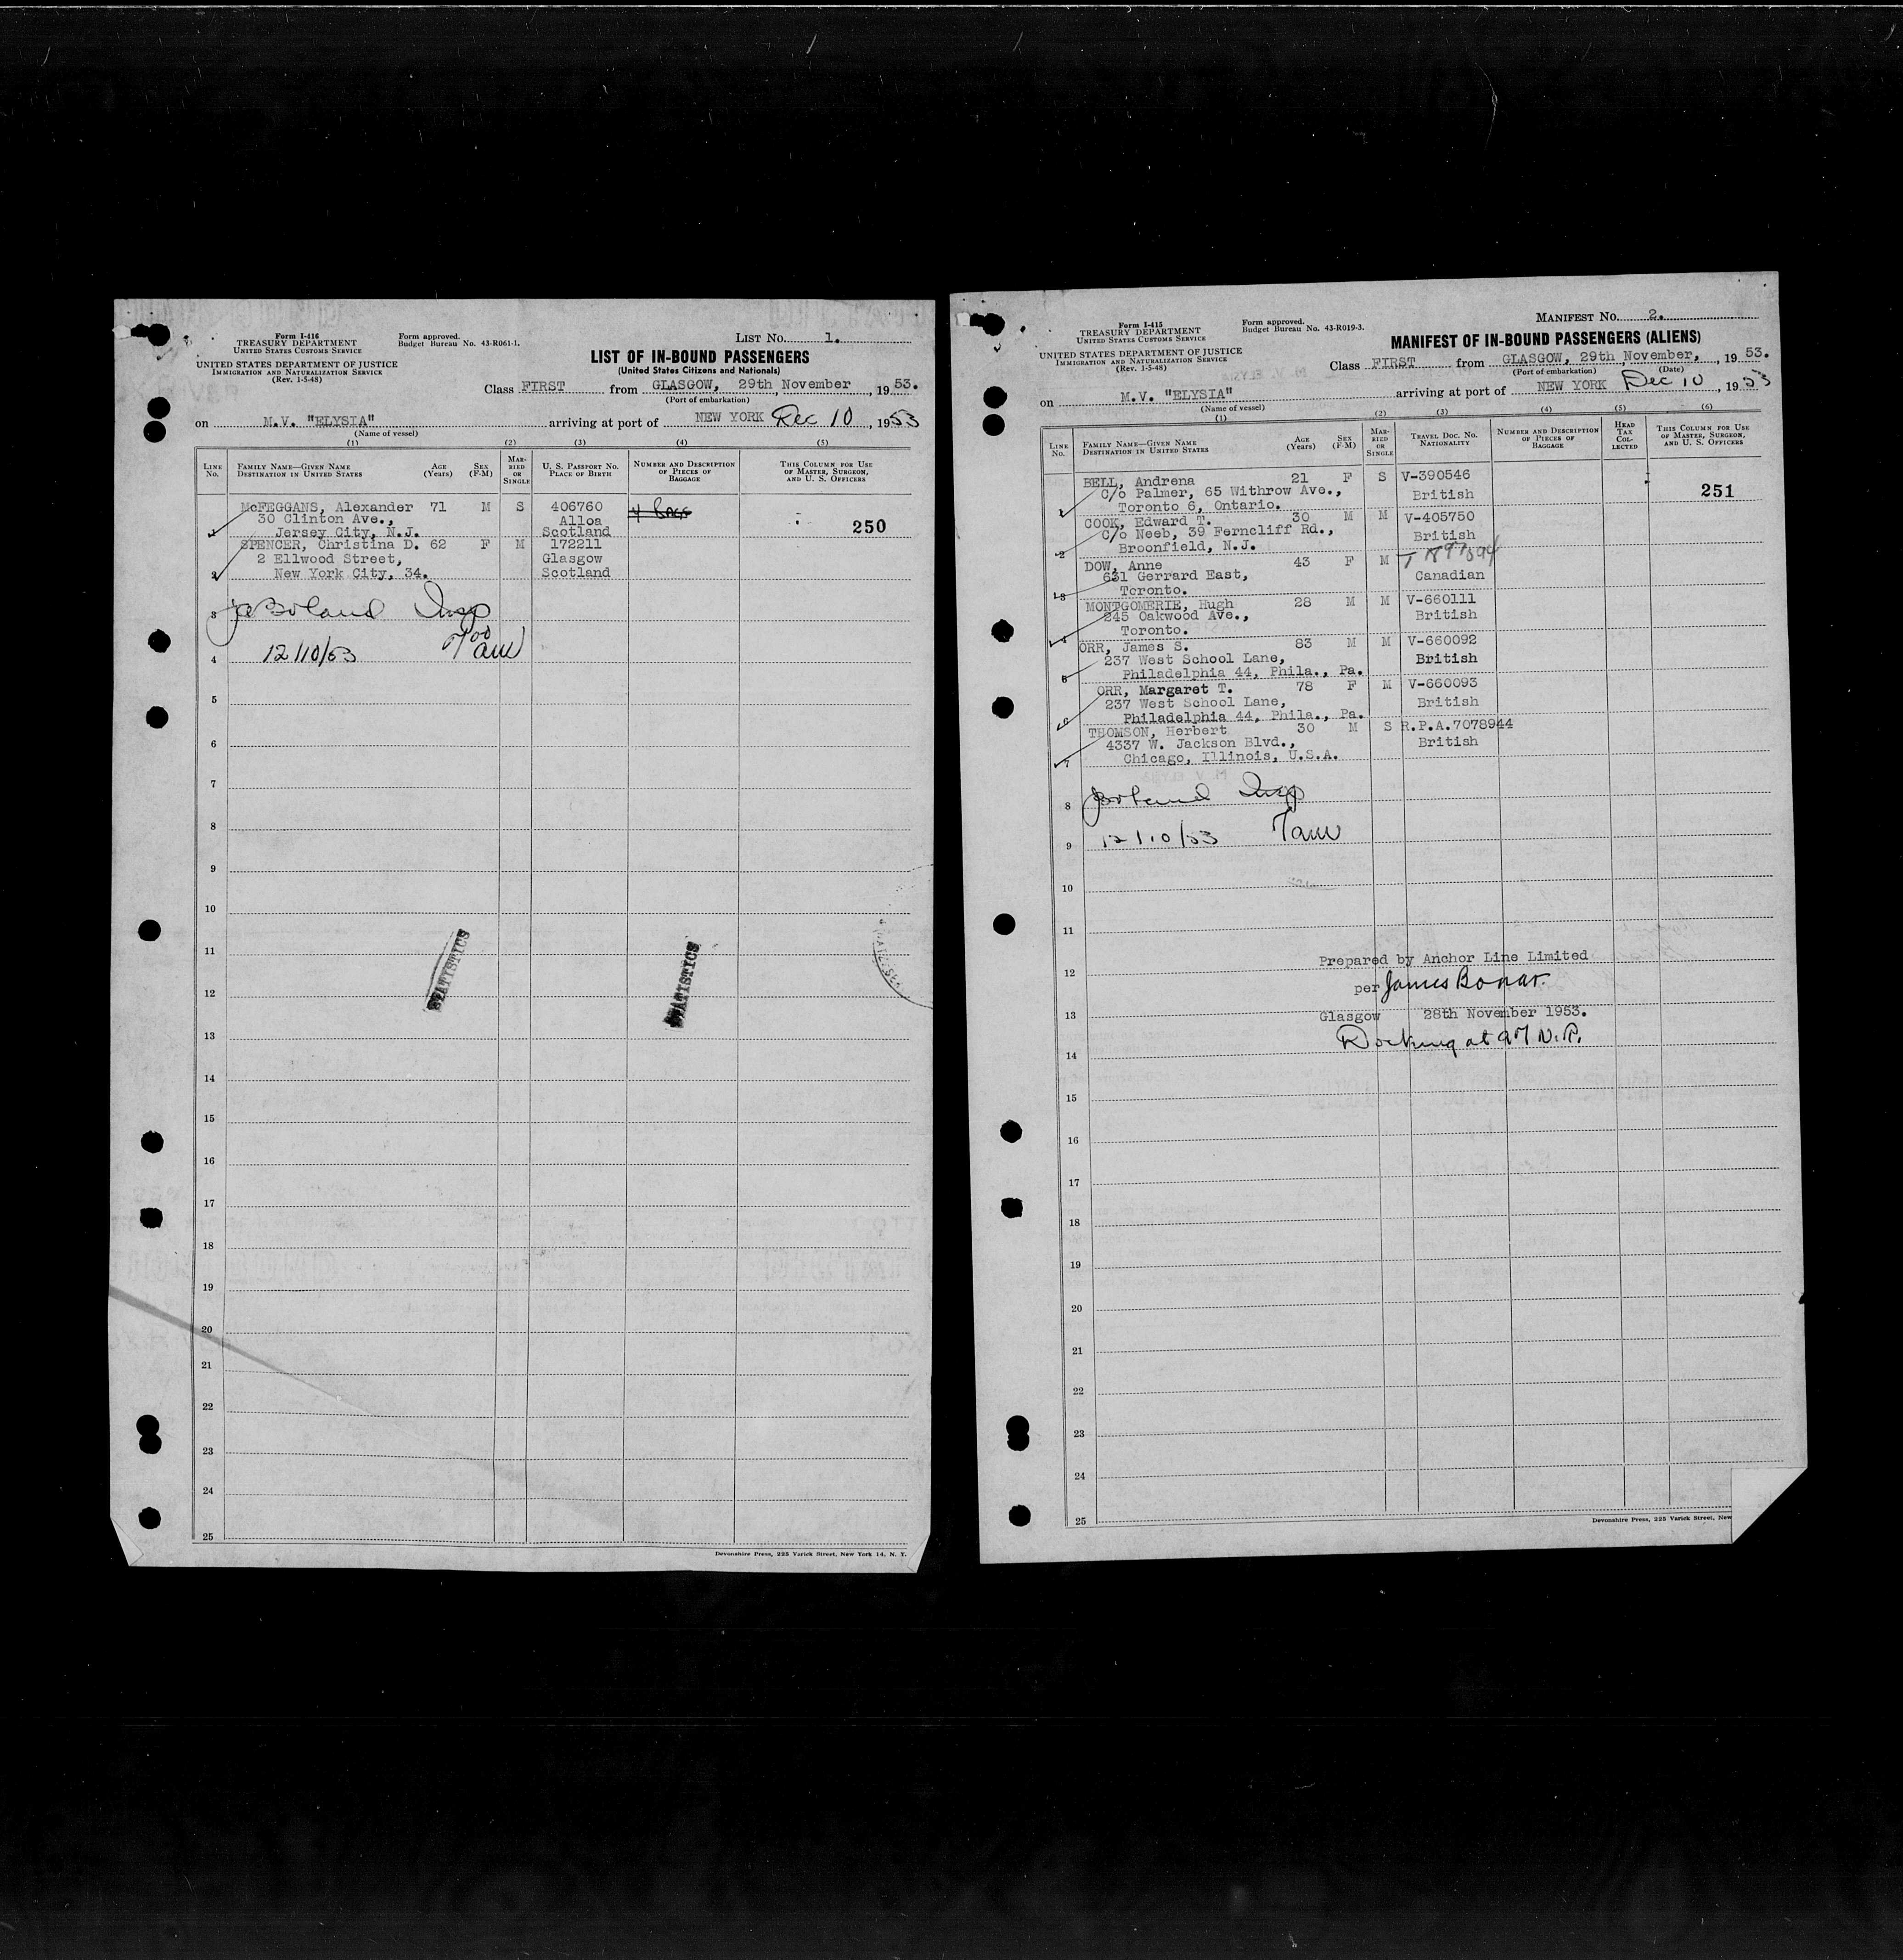 Form I-416
TREASURY DEPARTMENT
UNITED STATES CUSTOMS SERVICE
UNITED STATES DEPARTMENT OF JUSTICE
IMMIGRATION AND NATURALIZATION SERVICE
(Rev. 1-5-48)
Form approved.
Budget Bureau No. 43-R061-1.
LIST No. 1.
LIST OF IN-BOUND PASSENGERS
(United States Citizens and Nationals)
Class FIRST from GLASGOW, 29th November, 1953.
(Port of embarkation)
on M.V. "ELYSIA" arriving at port of NEW YORK Dec 10, 1953
(Name of vessel)
(1) (2) (3) (4) (5)
LINE No. FAMILY NAME—GIVEN NAME DESTINATION IN UNITED STATES AGE (Years) SEX (F-M) MARRIED OR SINGLE U. S. PASSPORT No. PLACE OF BIRTH NUMBER AND DESCRIPTION OF PIECES OF BAGGAGE THIS COLUMN FOR USE OF MASTER, SURGEON, AND U. S. OFFICERS
1 McFEGGANS, Alexander 71 M S 406760 4 bags
30 Clinton Ave., Alloa 250
Jersey City, N.J. Scotland
2 SPENCER, Christina D. 62 F M 172211
2 Ellwood Street, Glasgow
New York City, 34. Scotland
3 Boland Insp
4 12/10/53 7 00 am
5
6
7
8
9
10
11
12
STATISTICS
STATISTICS
13
14
15
16
17
18
19
20
21
22
23
24
25
Devonshire Press, 225 Varick Street, New York 14, N. Y.
Form I-415
TREASURY DEPARTMENT
UNITED STATES CUSTOMS SERVICE
UNITED STATES DEPARTMENT OF JUSTICE
IMMIGRATION AND NATURALIZATION SERVICE
(Rev. 1-5-48)
Form approved.
Budget Bureau No. 43-R019-3.
MANIFEST No. 2.
MANIFEST OF IN-BOUND PASSENGERS (ALIENS)
Class FIRST from GLASGOW, 29th November, 1953.
(Port of embarkation) (Date)
on M.V. "ELYSIA" arriving at port of NEW YORK Dec 10, 1953
(Name of vessel)
(1) (2) (3) (4) (5) (6)
LINE No. FAMILY NAME—GIVEN NAME DESTINATION IN UNITED STATES AGE (Years) SEX (F-M) MARRIED OR SINGLE TRAVEL DOC. No. NATIONALITY NUMBER AND DESCRIPTION OF PIECES OF BAGGAGE HEAD TAX COLLECTED THIS COLUMN FOR USE OF MASTER, SURGEON, AND U. S. OFFICERS
1 BELL, Andrena 21 F S V-390546
C/o Palmer, 65 Withrow Ave., British 251
Toronto 6, Ontario.
2 COOK, Edward T. 30 M M V-405750
C/o Neeb, 39 Ferncliff Rd., British
Broonfield, N.J.
3 DOW, Anne 43 F M
631 Gerrard East, Canadian
Toronto.
4 MONTGOMERIE, Hugh 28 M M V-660111
245 Oakwood Ave., British
Toronto.
5 ORR, James S. 83 M M V-660092
237 West School Lane, British
Philadelphia 44, Phila., Pa.
6 ORR, Margaret T. 78 F M V-660093
237 West School Lane, British
Philadelphia 44, Phila., Pa.
7 THOMSON, Herbert 30 M S R.P.A.7078944
4337 W. Jackson Blvd., British
Chicago, Illinois, U.S.A.
8 Boland Insp
9 12/10/53 7am
10
11
12 Prepared by Anchor Line Limited
per James Bonar.
13 Glasgow 28th November 1953.
14 Docking at 97 N.R.
15
16
17
18
19
20
21
22
23
24
25
Devonshire Press, 225 Varick Street, New